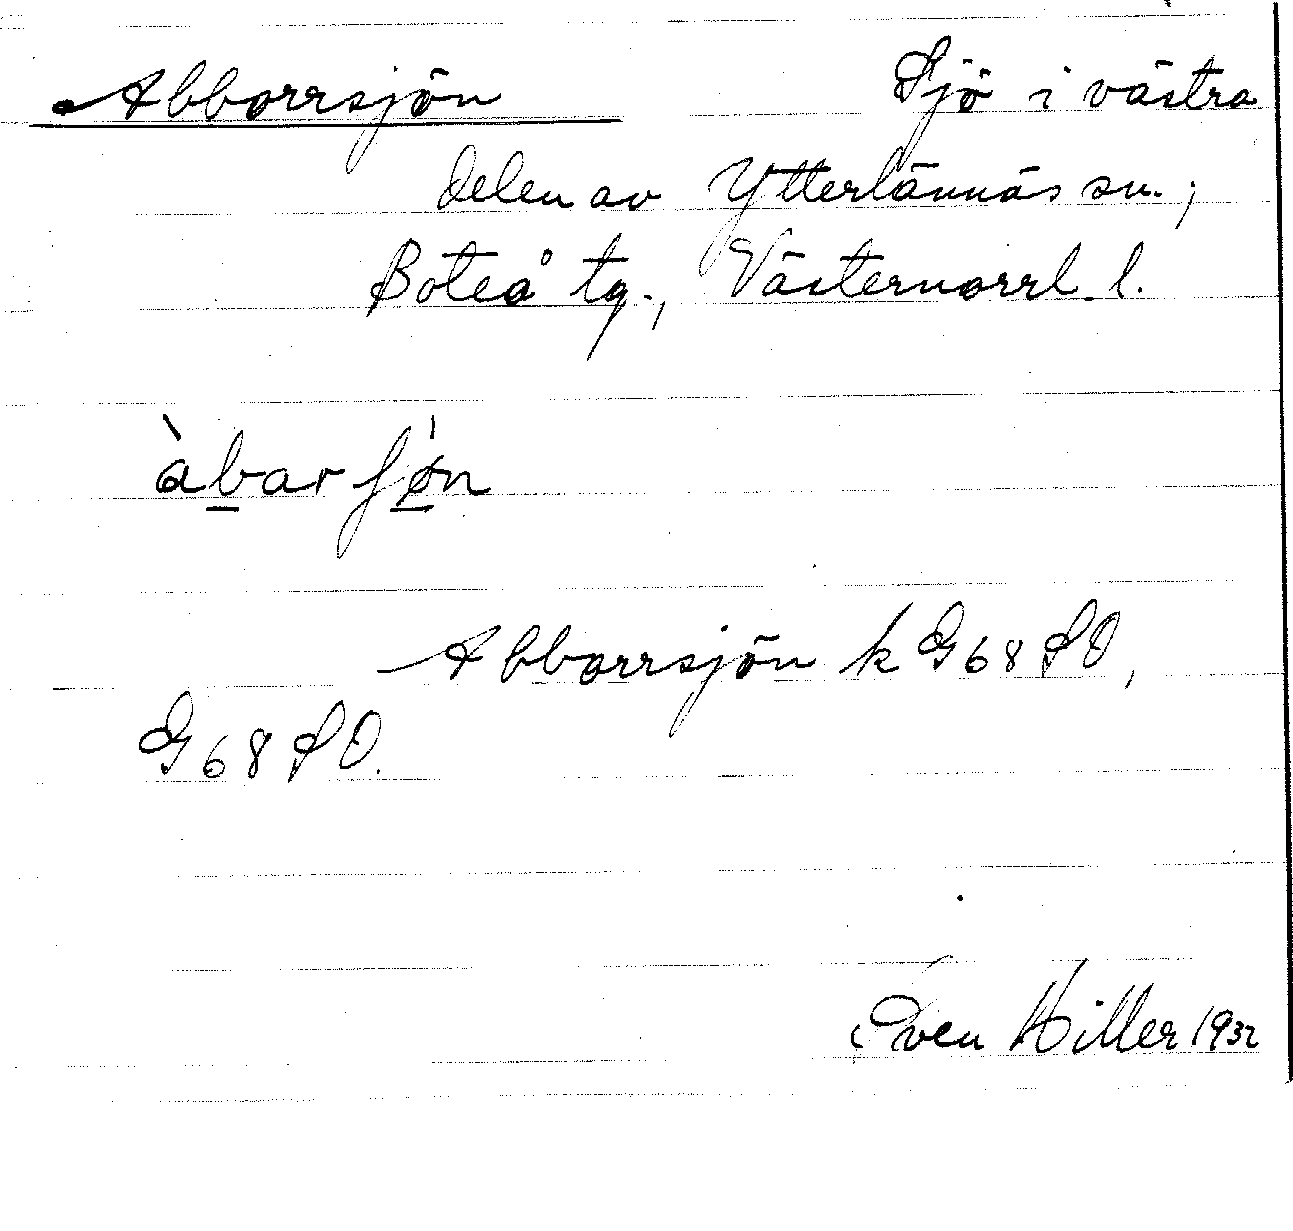 Abborrsjön Sjö i västra
delen av Ytterlännäs sn.,
Boteå tg., Västernorrl. l.
àb̲arʃø̲̀n
Abborrsjön k G68SO,
G68SO.
Sven Hiller 1932